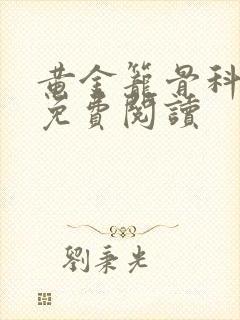 黄金籠骨科
免費閱讀
劉秉光